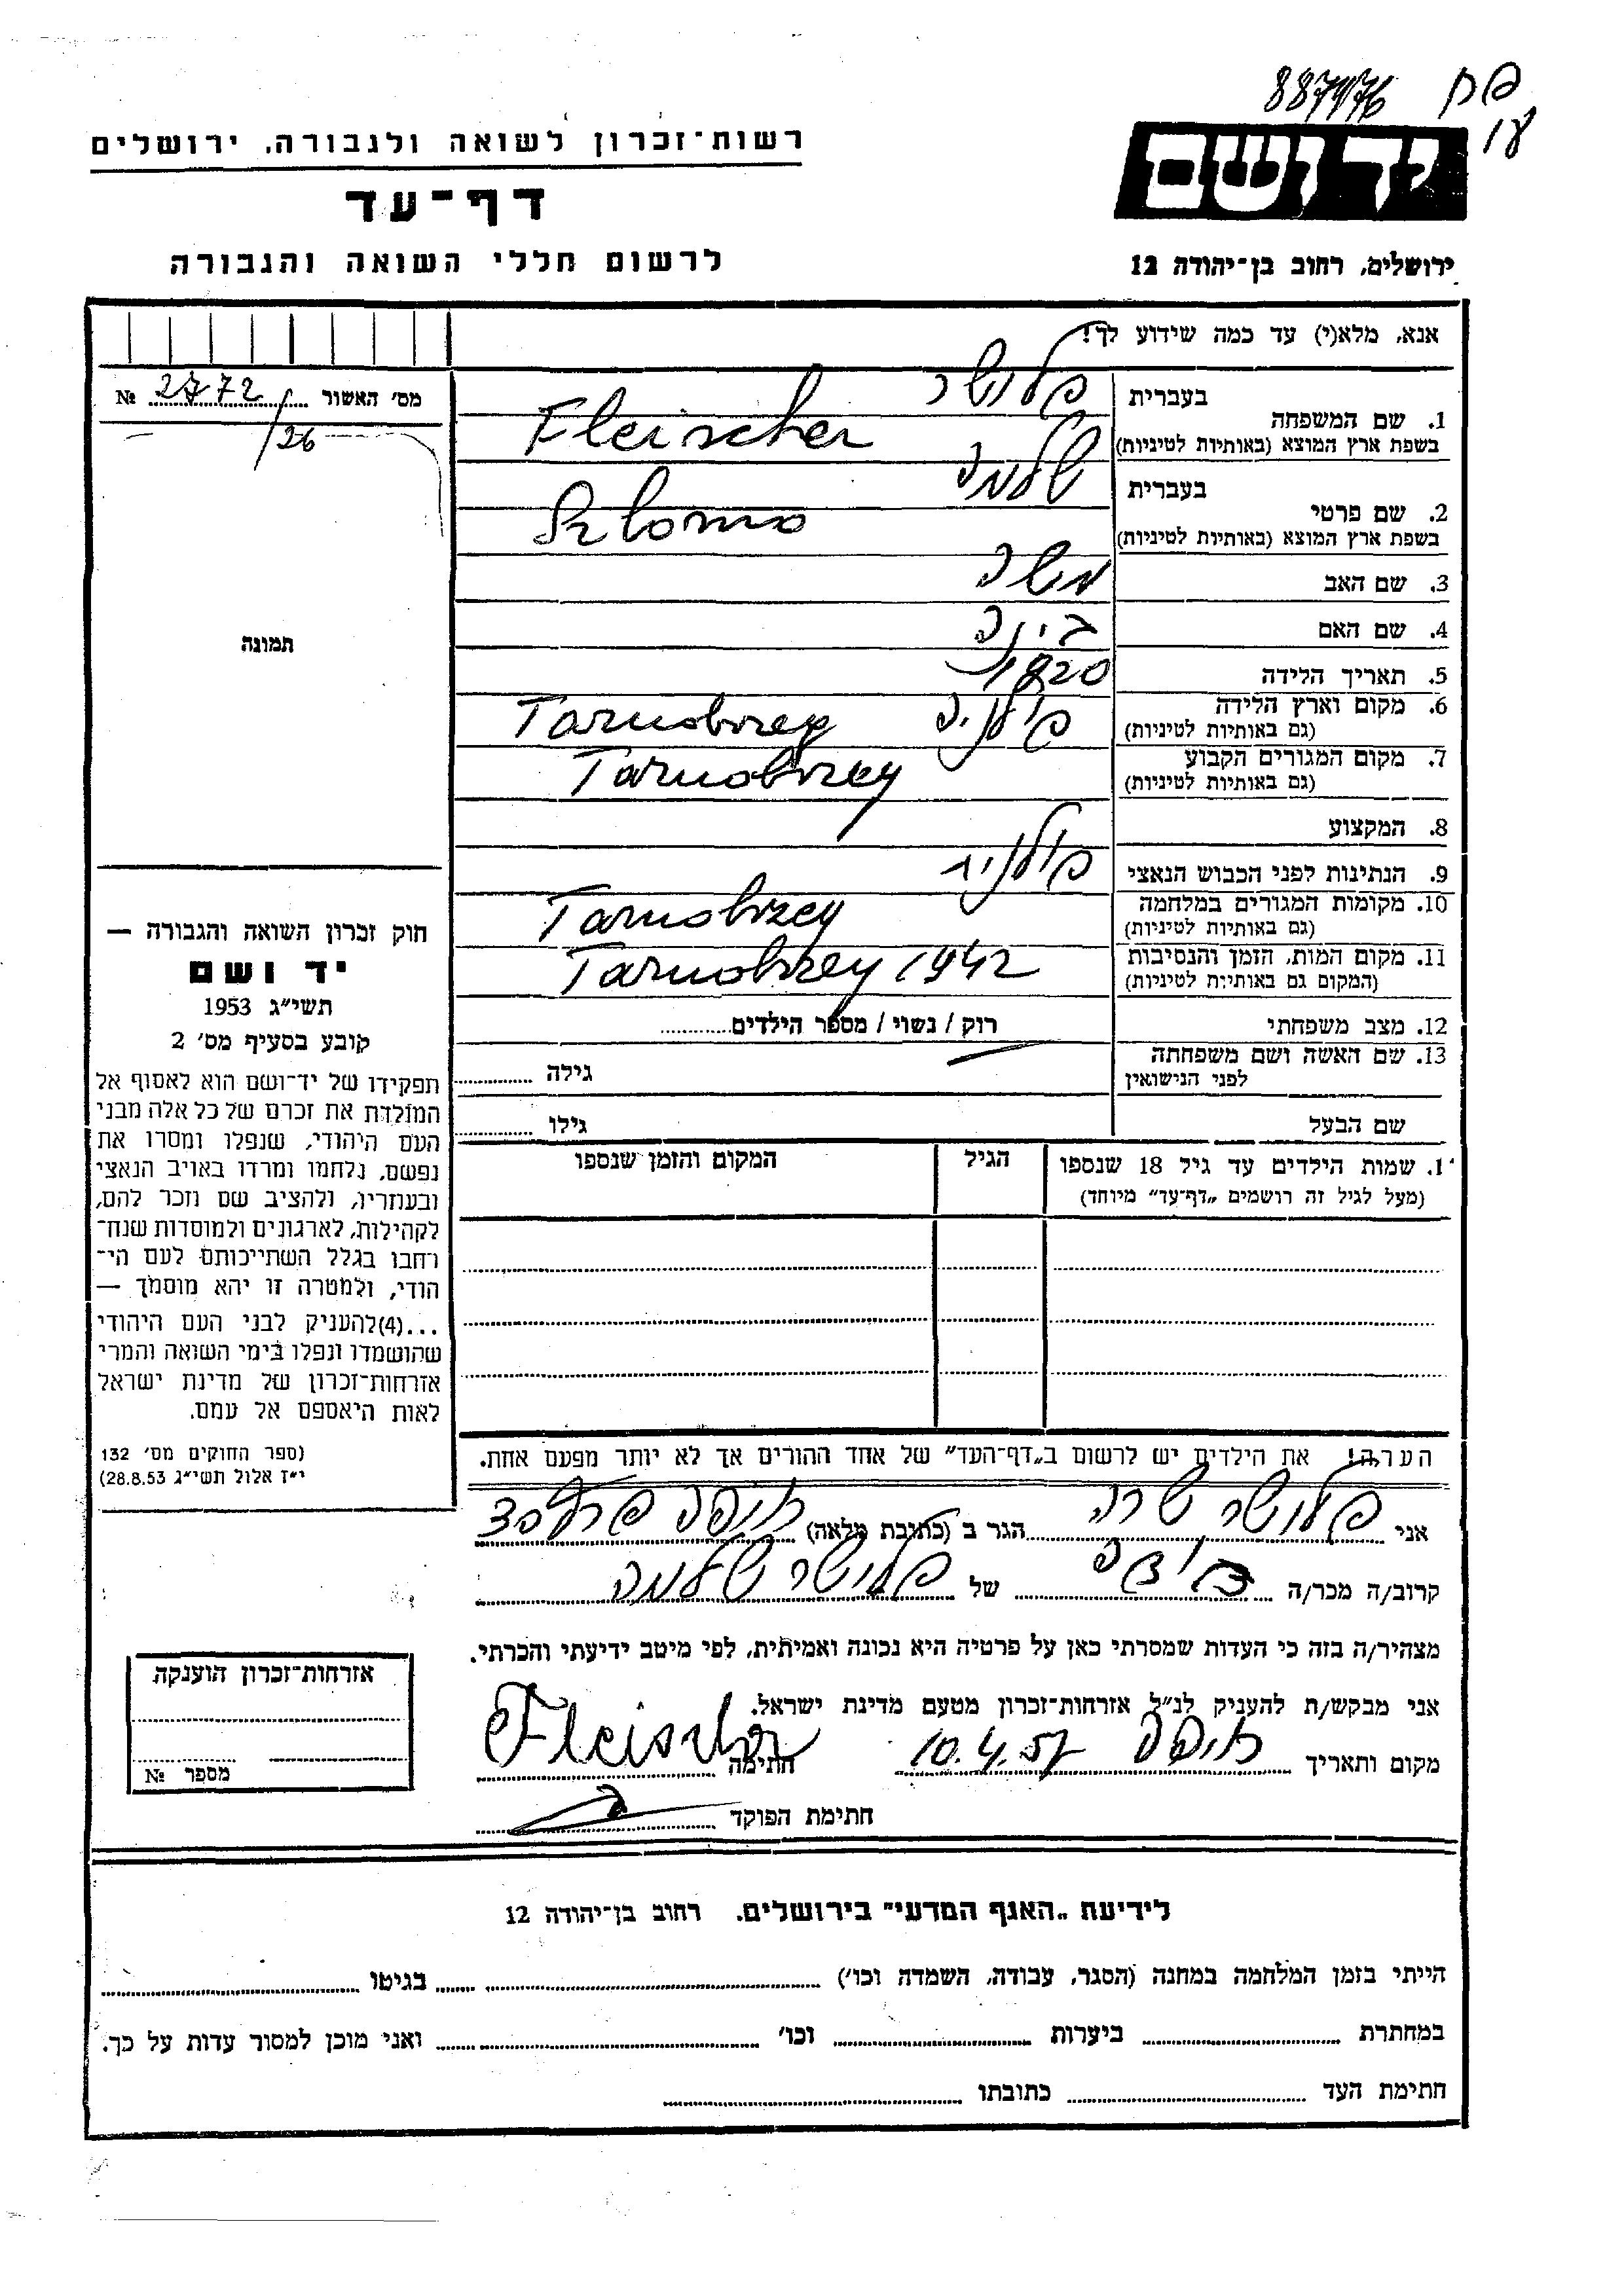 887476 פק
ען
יד ושם
ירושלים, רחוב בן־יהודה 12
רשות־זכרון לשואה ולגבורה. ירושלים
דף־עד
לרשום חללי השואה והגבורה
אנא, מלא(י) עד כמה שידוע לך!
1. שם המשפחה
בעברית פליישר
בשפת ארץ המוצא (באותיות לטיניות) Fleischer
2. שם פרטי
בעברית שלמה
בשפת ארץ המוצא (באותיות לטיניות) Szlomo
3. שם האב משה
4. שם האם בינה
5. תאריך הלידה 1920
6. מקום וארץ הלידה
(גם באותיות לטיניות) פולניה Tarnobrzeg
7. מקום המגורים הקבוע
(גם באותיות לטיניות) Tarnobrzeg
8. המקצוע
9. הנתינות לפני הכבוש הנאצי פולנית
10. מקומות המגורים במלחמה
(גם באותיות לטיניות) Tarnobrzeg
11. מקום המות, הזמן והנסיבות
(המקום גם באותיות לטיניות) Tarnobrzeg 1942
12. מצב משפחתי רוק / נשוי / מספר הילדים
13. שם האשה ושם משפחתה
לפני הנישואין גילה
שם הבעל גילו
1. שמות הילדים עד גיל 18 שנספו
(מעל לגיל זה רושמים „דף־עד" מיוחד)
הגיל
המקום והזמן שנספו
הערה! את הילדים יש לרשום ב„דף־העד" של אחד ההורים אך לא יותר מפעם אחת.
אני פליישר שרה הגר ב (כתובת מלאה) חיפה
קרוב/ה מכר/ה של פליישר שלמה
מצהיר/ה בזה כי העדות שמסרתי כאן על פרטיה היא נכונה ואמיתית, לפי מיטב ידיעתי והכרתי.
אני מבקש/ת להעניק לנ"ל אזרחות־זכרון מטעם מדינת ישראל.
מקום ותאריך חיפה 10.4.57 חתימה Fleischer
חתימת הפוקד
מס׳ האשור № 2772
/26
תמונה
חוק זכרון השואה והגבורה —
יד ושם
תשי"ג 1953
קובע בסעיף מס׳ 2
תפקידו של יד־ושם הוא לאסוף אל
המולדת את זכרם של כל אלה מבני
העם היהודי, שנפלו ומסרו את
נפשם, נלחמו ומרדו באויב הנאצי
ובעוזריו, ולהציב שם וזכר להם,
לקהילות, לארגונים ולמוסדות שנח־
רחבו בגלל השתייכותם לעם הי־
הודי, ולמטרה זו יהא מוסמך —
...(4) להעניק לבני העם היהודי
שהושמדו ונפלו בימי השואה והמרי
אזרחות־זכרון של מדינת ישראל
לאות היאספם אל עמם.
(ספר החוקים מס׳ 132
י"ז אלול תשי"ג 28.8.53)
אזרחות־זכרון הוענקה
מספר №
לידיעת „האגף המדעי" בירושלים. רחוב בן־יהודה 12
הייתי בזמן המלחמה במחנה (הסגר, עבודה, השמדה וכו׳) בגיטו
במחתרת ביערות וכו׳ ואני מוכן למסור עדות על כך.
חתימת העד כתובתו